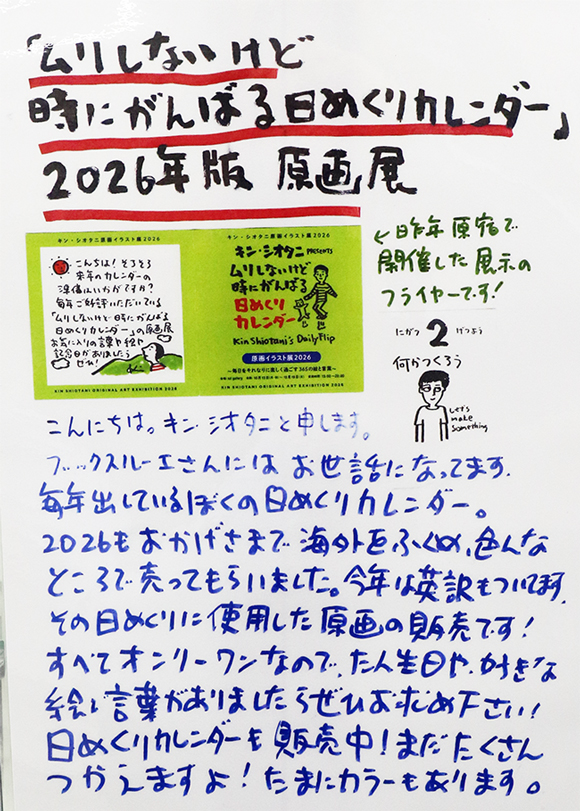 「ムリしないけど
時にがんばる日めくりカレンダー」
2026年版 原画展
キン・シオタニ原画イラスト展2026
こんちは！そろそろ
来年のカレンダーの
準備はいかがですか？
毎年ご好評いただいている
「ムリしないけど時にがんばる
日めくりカレンダー」の原画展
お気に入りの言葉や絵や
記念日がありましたら
ぜひ！
KIN SHIOTANI ORIGINAL ART EXHIBITION 2026
キン・シオタニ原画イラスト展2026
キン・シオタニ PRESENTS
ムリしないけど
時にがんばる
日めくり
カレンダー
Kin Shiotani's Daily flip
原画イラスト展2026
〜毎日をそれなりに楽しく過ごす365の絵と言葉〜
KIN SHIOTANI ORIGINAL ART EXHIBITION 2026
←昨年原宿で
開催した展示の
フライヤーです！
にがつ 2 げつよう
何かつくろう
Let's
make
something
こんにちは。キン・シオタニと申します。
ブックスルーエさんにはお世話になってます。
毎年出しているぼくの日めくりカレンダー。
2026もおかげさまで海外をふくめ、色んな
ところで売ってもらいました。今年は英訳もついてます。
その日めくりに使用した原画の販売です！
すべてオンリーワンなので、たん生日や、好きな
絵と言葉がありましたらぜひお求め下さい！
日めくりカレンダーも販売中！まだたくさん
つかえますよ！たまにカラーもあります。